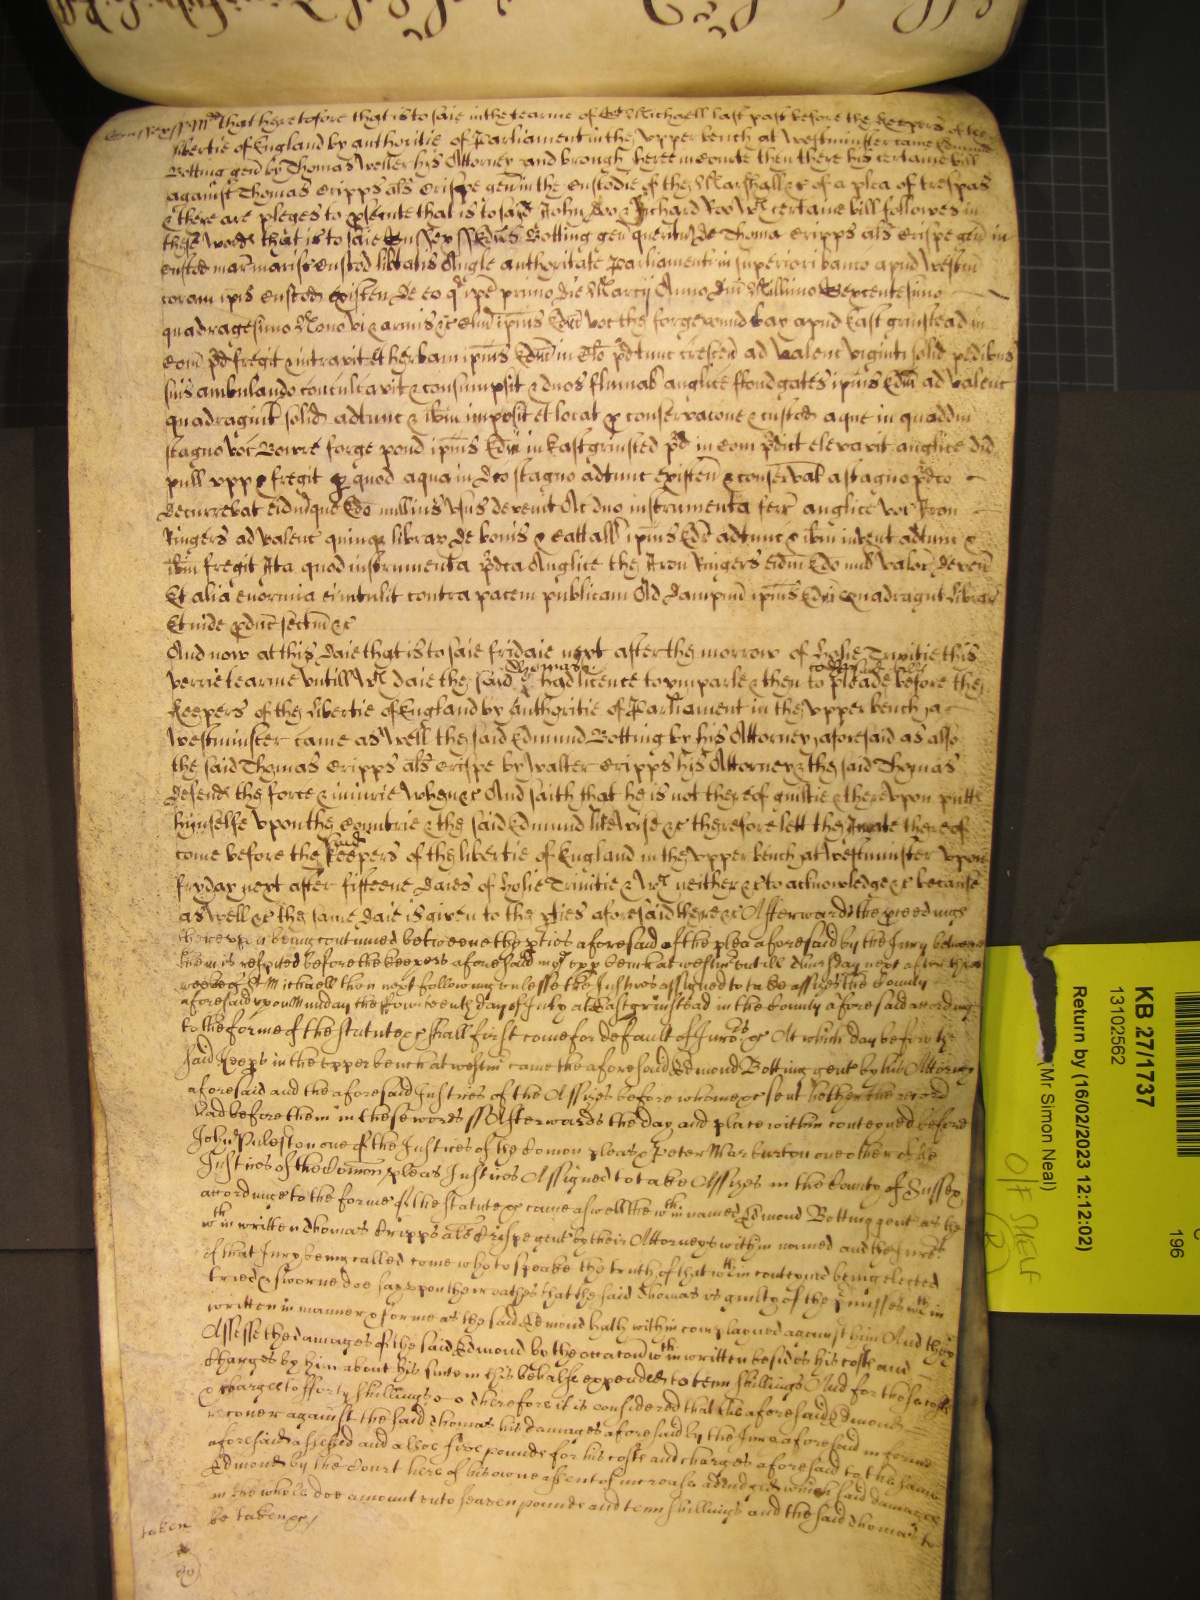 Sussex ss Md That heretofore that is to saie in the tearme of St Michaell last past before the keepers of the
libertie of England by authoritie of Parliament in the upper bench at Westminster came Edmund
Botting gen by Thomas Weller his Attorney and brough heere in courte then there his certaine bill
against Thomas Cripps als Crispe gen in the custodie of the Marshall &c of a plea of trespas
& there are pleges to psecute that is to saie John Doo & Richard Roo wch certaine bill followes in
these words that is to saie Sussex ss Edus Botting gen queritur de Thoma Cripps als Crispe gen in
custod mar marisc custod libtatis Angle authoritate Parliamenti in superiori banco apud Westm
coram ipis custod existen de eo qd ipe primo die Marcij Anno Dni Millimo Sexcentesimo
quadragesimo Nono vi & armis &c clm ipius Edi voc the forge pond bay apud East grinstead in
com pd fregit & intravit Et herbam ipius Edi in clo pd tunc crescen ad valenc viginti solid pedibus
suis ambulando conculcavit & consumpsit & duos fluniab anglice flood gates ipius Edi ad valenc
quadragint solid adtunc & ibm imposit et locat p conservacone & custod aque in quodm
stagno voc Bowre forge pond ipius Edi in East grinsted pd in com pdict elevavit anglice did
pull upp & fregit p quod aqua in dco stagno adtunc existen & conservat a stagno pdco
decurrebat eidmque Edo nullius usus devenit Ac duo instrumenta ferr anglice voc Iron
Ringers ad valenc quinq librar de bonis & catall ipius Edi adtunc & ibm invent adtunc &
ibm fregit Ita quod instrumenta pdca Anglice the Iron Ringers eidm Edo null valor deven
Et alia enormia ei intulit contra pacem publicam Ad dampnu ipius Edi Quadragint librar
Et inde pduc sectm &c
And now at this daie that is to saie fridaie next after the morrow of holie Trinitie this
verrie tearme untill wch daie the said Thomas had licence to imparle & then to pleade before the
keepers of the libertie of England by Authoritie of Parliament in the upper bench at
Westminster came as well the said Edmund Botting by his Attorney aforesaid as also
the said Thomas Cripps als Crispe by Walter Cripps his Attorney & the said Thomas
defend the force & iniurie when &c And saith that he is not thereof guiltie & thereupon putts
himselfe upon the Countrie & the said Edmund likewise &c therefore lett the Jurate thereof
come before the said keepers of the libertie of England in the upper bench at Westminster upon
fryday next after fifteene daies of holie Trinitie & wch neither &c to acknowledge &c because
as well &c the same daie is given to the pties aforesaid there &c Afterwards the pceedings
thereupon being continued betweene the pties aforesaid of the plea aforesaid by the Jury betweene
them is respited before the keepers aforesaid in the upp bench at westm untill Thursday next after three
weekes of St Michaell then next following unlesse the Justices assigned to take assizes in the County
aforesaid upon Munday the fowrteenth day of July at East grinstead in the County aforesaid according
to the forme of the statute &c shall first come for default of Jurors &c At which day before the
said keeps in the upper bench at westm came the aforesaid Edmond Botting gent by his Attorney
aforesaid and the aforesaid Justices of the Assizes before whome &c sent hether the record
had before them in these words ss Afterwards the day and place within conteyned before
John Puleston one of the Justices of the Comon pleas & Peter Warburton one other of the
Justices of the Comon pleas Justices Assigned to take Assizes in the County of Sussex
according to the forme of the statute &c came aswell the wthin named Edmond Botting gent as the
wthin written Thomas Cripps als Crispe gent by their Attorneys within named and the Jurors
of that Jury being called come who to speake the truth of that wthin conteyned being elected
tried & sworne doe say upon their oathes that the said Thomas is guilty of the pmisses wthin
written in manner & forme as the said Edmond hath within complayned against him And they
Assesse the damages of the said Edmond by the occacon wthin written besides his costs and
Charges by him about his suite in this behalfe expended to tenn shillings And for those costs
& charges to fforty shillings Therefore it is considered that the aforesaid Edmond
recover against the said Thomas his damages aforesaid by the Jury aforesaid in forme
aforesaid assessed and alsoe five pounds for his costs and charges aforesaid to the same
Edmond by the Court here of his owne assent of increase adiudged which said damages
in the whole doe amount unto seaven pounds and tenn shillings and the said Thomas to
be taken &c
taken
KB 27/1737
13102562
(Mr Simon Neal)
Return by (16/02/2023 12:12:02)
196
O/F SHELF